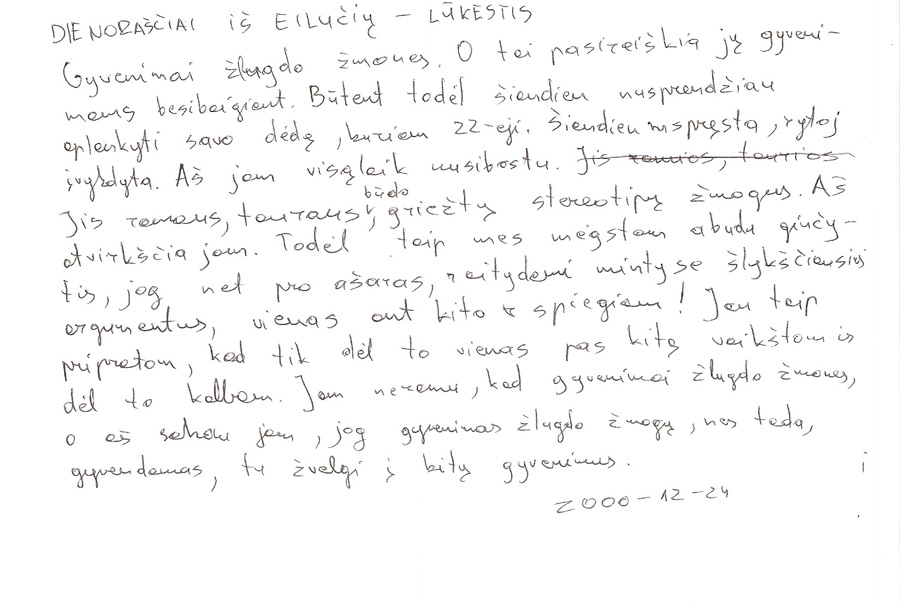 DIENORAŠČIAI IŠ EILUČIŲ – LŪKESTIS
Gyvenimai žlugdo žmones. O tai pasireiškia jų gyveni-
mams besibaigiant. Būtent todėl šiendien nusprendžiau
aplankyti savo dėdę, kuriam 22-eji. Šiendien nuspręsta, rytoj
įvykdyta. Aš jam visąlaik nusibostu. Jis ramios, taurios
būdo
Jis ramaus, tauraus, griežtų stereotipų žmogus. Aš
atvirkščia jam. Todėl taip mes mėgstam abudu ginčy-
tis, jog net pro ašaras, raitydami mintyse šlykščiausius
argumentus, vienas ant kito spiegiam! Jau taip
pripratom, kad tik dėl to vienas pas kitą vaikštom ir
dėl to kalbam. Jam neramu, kad gyvenimai žlugdo žmones,
o aš sakau jam, jog gyvenimas žlugdo žmogų, nes tada,
gyvendamas, tu žvelgi į kitų gyvenimus.
2000-12-24